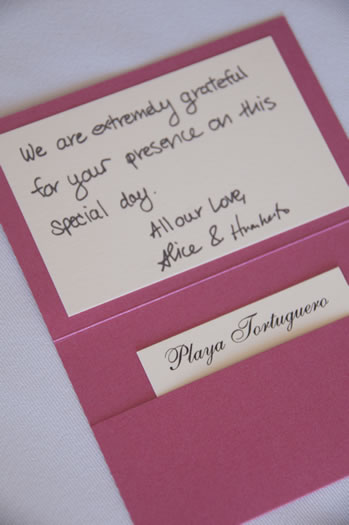 We are extremely grateful
for your presence on this
special day.
All our Love,
Alice & Humberto
Playa Tortuguero